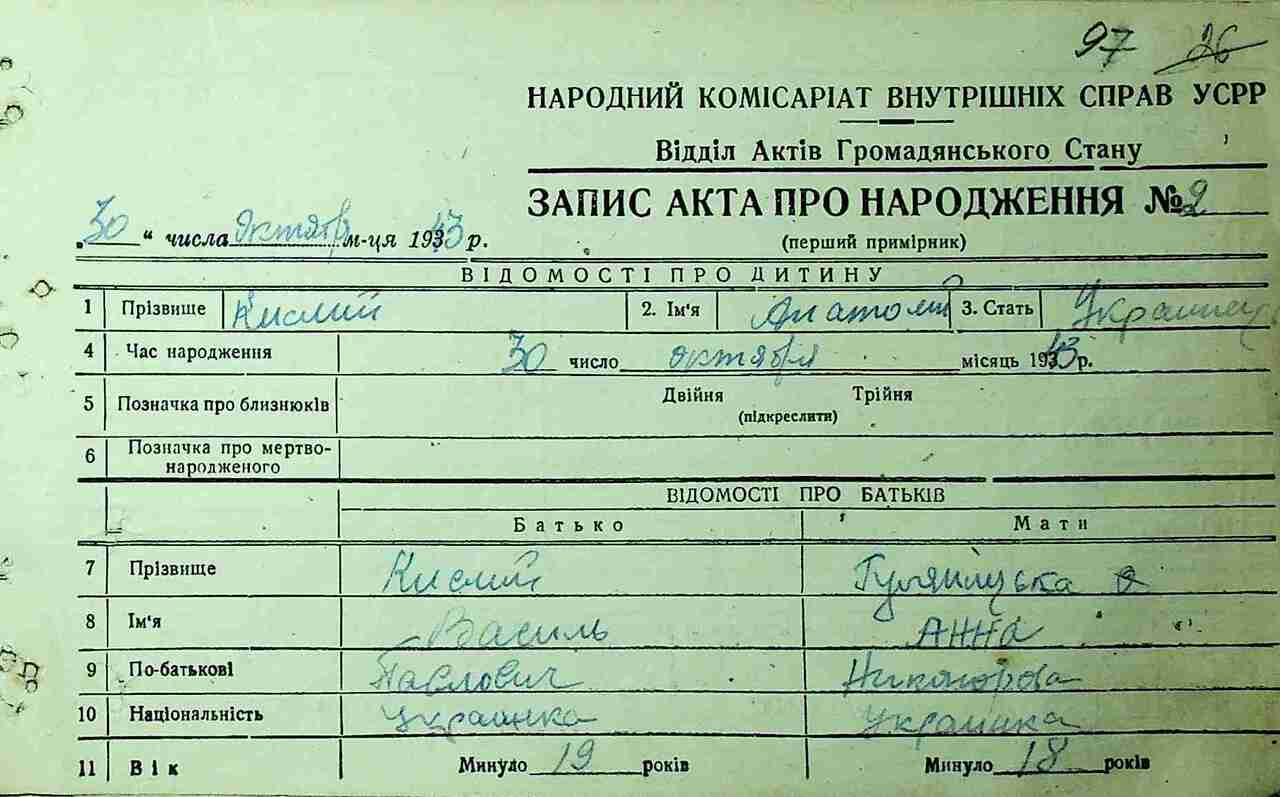 97 26
НАРОДНИЙ КОМІСАРІАТ ВНУТРІШНІХ СПРАВ УСРР
Відділ Актів Громадянського Стану
ЗАПИС АКТА ПРО НАРОДЖЕННЯ № 2
„30“ числа октября м-ця 1943 р.
(перший примірник)
ВІДОМОСТІ ПРО ДИТИНУ
1 Прізвище Кислий 2. Ім'я Анатолий 3. Стать Украинец
4 Час народження 30 число октября місяць 1943 р.
5 Позначка про близнюків Двійня Трійня
(підкреслити)
6 Позначка про мертво-
народженого
ВІДОМОСТІ ПРО БАТЬКІВ
Батько Мати
7 Прізвище Кислий
8 Ім'я Василь Анна
9 По-батькові Павлович
10 Національність украинка Украинка
11 Вік Минуло 19 років Минуло 18 років